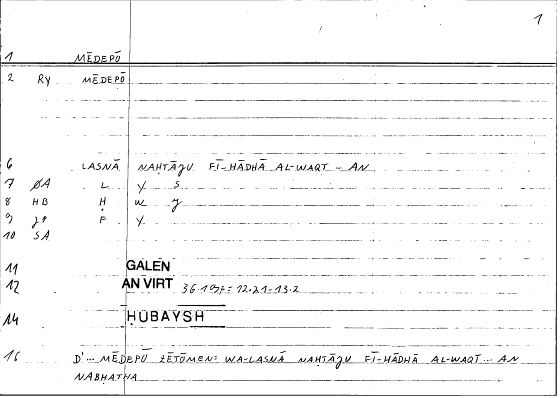 1
1 MĒDEPŌ
2 RY MĒDEPŌ
6 LASNĀ NAHTĀJU FĪ-HĀDHĀ AL-WAQT ... AN
7 ØA L Y S
8 HB Ḥ W J
9 F Y
10 SA
11 GALEN
12 AN VIRT
14 ḤUBAYSH
16 D'... MĒDEPŌ ZĒTŌMEN= WA-LASNĀ NAḤTĀJU FĪ-HĀDHĀ AL-WAQT... AN
NABHATHA